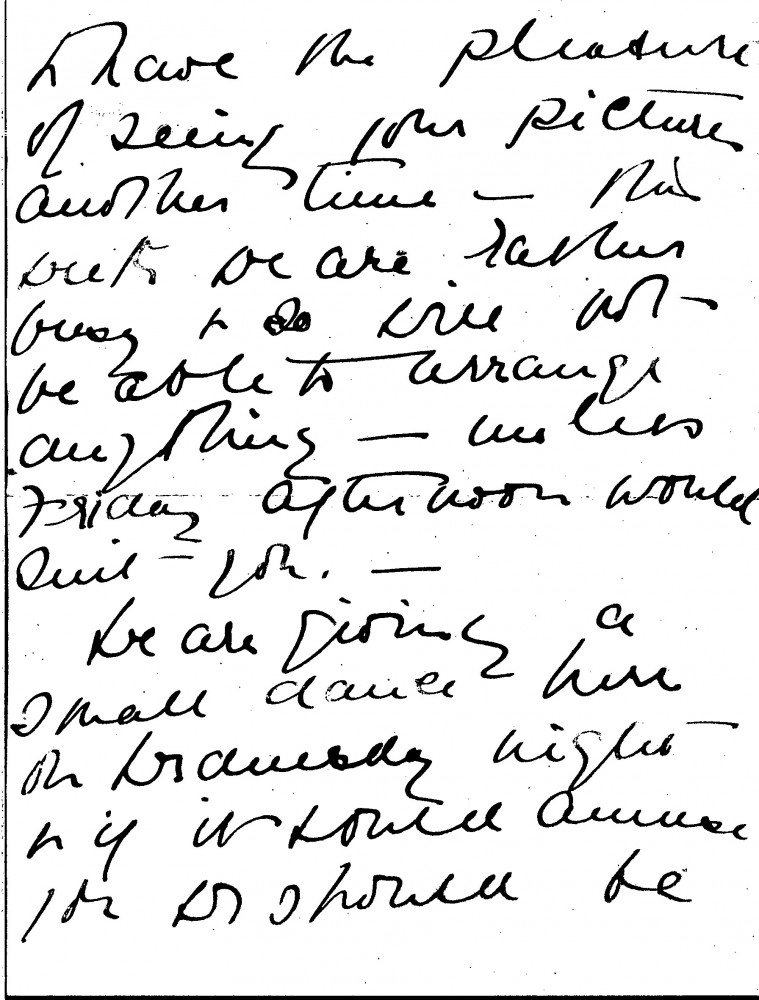 & have the pleasure
of seeing your pictures
another time — this
week we are rather
busy & so will not
be able to arrange
anything — unless
Friday afternoon would
suit you. —
We are giving a
small dance here
on Wednesday night
& if it would amuse
you we should be